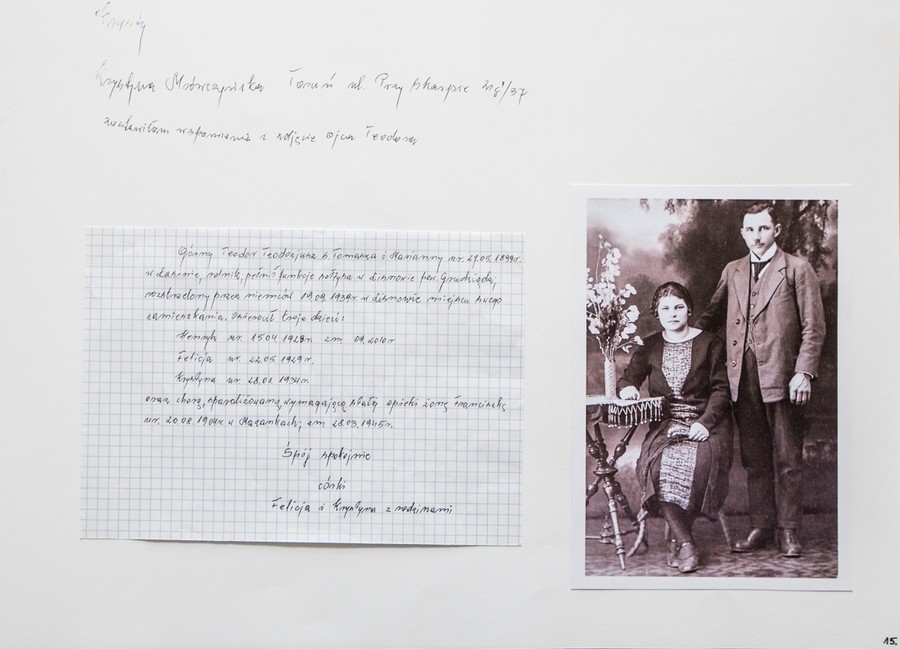 Krystyna Toruń ul. Przy Skarpie
zostawiłam wspomnienie i zdjęcie ojca Teodora
Górny Teodor Teodozjusz s. Tomasza i Marianny ur. 27.05.1899r.
w rolnik, pełnił funkcję sołtysa w Lisnowie pow. Grudziądz,
rozstrzelany przez niemców 19.09.1939r. w Lisnowie miejscu swego
zamieszkania. Osierocił troje dzieci:
Henryk ur. 15.04.1928r. zm 09.2010r
Felicja ur. 22.05.1929r.
Krystyna ur. 28.01.1934r.
oraz chorą, sparaliżowaną, wymagającą stałej opieki żonę Franciszkę
ur. 20.08.1904r. w Mazankach, zm 28.03.1945r.
Śpij spokojnie
córki
Felicja i Krystyna z rodzinami
15.